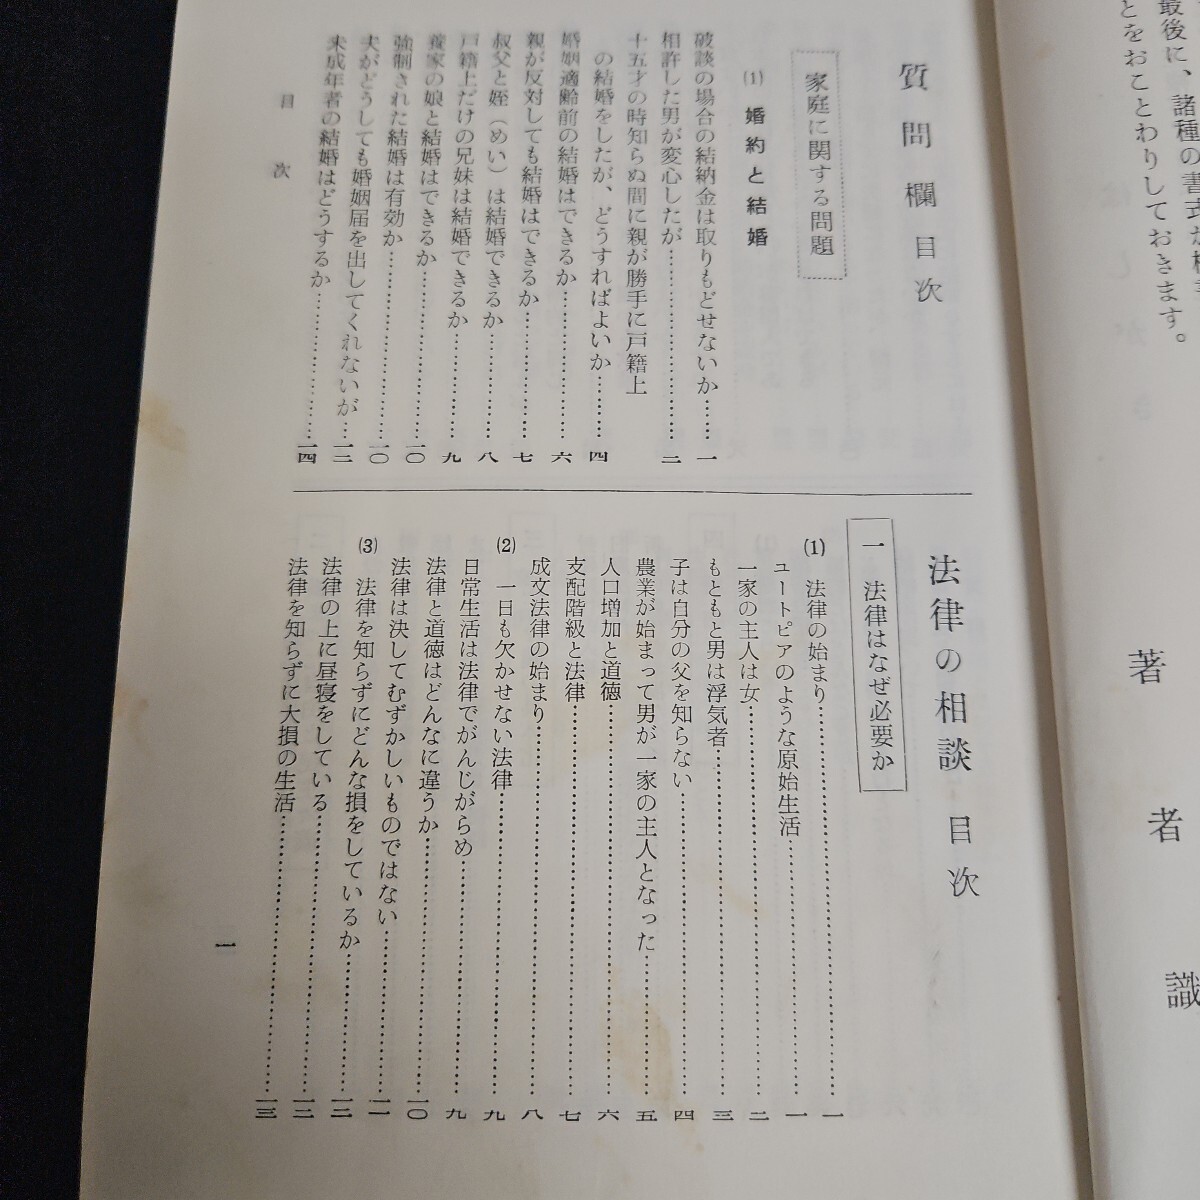 最後に、諸種の書式
とをおことわりしておきます。
著者識
質問欄目次
家庭に関する問題
(1) 婚約と結婚
破談の場合の結納金は取りもどせないか……一
相許した男が変心したが……二
十五才の時知らぬ間に親が勝手に戸籍上
の結婚をしたが、どうすればよいか……四
婚姻適齢前の結婚はできるか……六
親が反対しても結婚はできるか……七
叔父と姪(めい)は結婚できるか……八
戸籍上だけの兄妹は結婚できるか……九
養家の娘と結婚はできるか……一〇
強制された結婚は有効か……一〇
夫がどうしても婚姻届を出してくれないが……一二
未成年者の結婚はどうするか……一四
目次
法律の相談 目次
一 法律はなぜ必要か
(1) 法律の始まり……一
ユートピアのような原始生活……一
一家の主人は女……二
もともと男は浮気者……三
子は自分の父を知らない……四
農業が始まって男が一家の主人となった……五
人口増加と道徳……六
支配階級と法律……七
成文法律の始まり……八
(2) 一日も欠かせない法律……九
日常生活は法律でがんじがらめ……九
法律と道徳はどんなに違うか……一〇
法律は決してむずかしいものではない……一一
(3) 法律を知らずにどんな損をしているか……一二
法律の上に昼寝をしている……一二
法律を知らずに大損の生活……一三
一